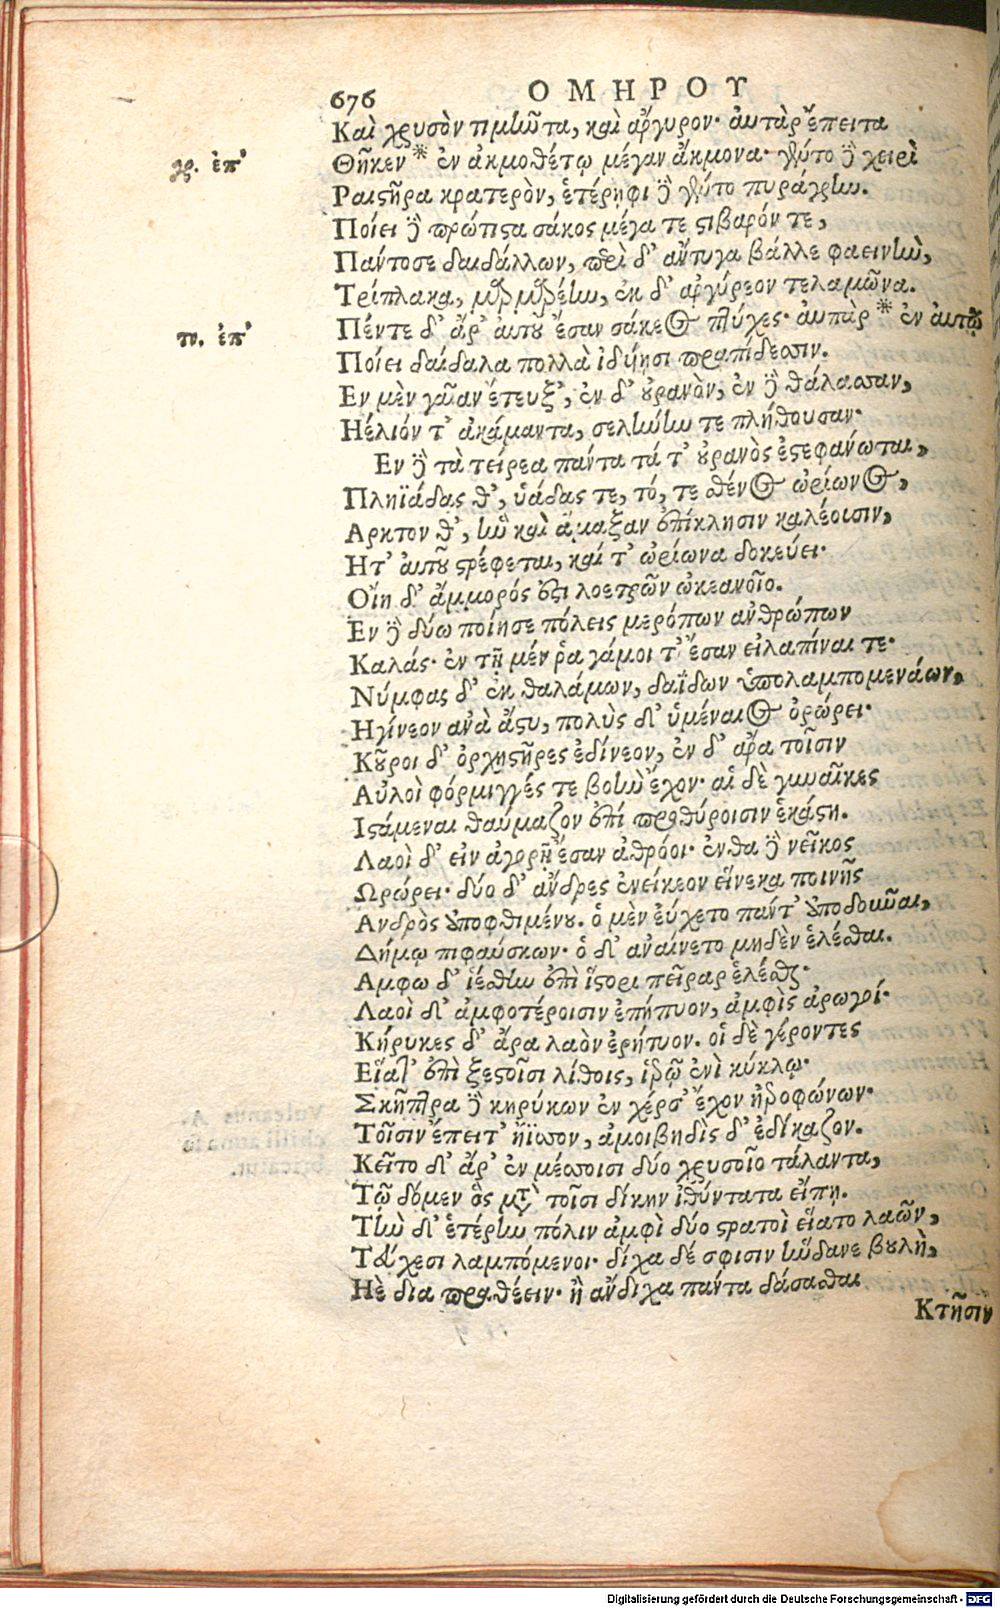 676 ΟΜΗΡΟΥ
Καὶ χρυσὸν τιμῶντα, καὶ ἄργυρον· ἀυτὰρ ἔπειτα
γρ. ἐπ'
Θῆκεν * ἐν ἀκμοθέτῳ μέγαν ἄκμονα· γύτο δὲ χειρὶ
Ραιστῆρα κρατερὸν, ἑτέρηφι δὲ γύτο πυράγρην.
Ποίει δὲ πρώτιστα σάκος μέγα τε στιβαρόν τε,
Πάντοσε δαιδάλλων, περὶ δ' ἄντυγα βάλλε φαεινὴν,
Τρίπλακα, μαρμαρέην, ἐκ δ' ἀργύρεον τελαμῶνα.
του. ἐπ'
Πέντε δ' ἄρ' ἀυτοῦ ἔσαν σάκεος πτύχες· ἀυτὰρ * ἐν ἀυτῷ
Ποίει δαίδαλα πολλὰ ἰδυίησι πραπίδεσσιν.
Εν μὲν γαῖαν ἔτευξ', ἐν δ' οὐρανὸν, ἐν δὲ θάλασσαν,
Ηέλιόν τ' ἀκάμαντα, σελήνην τε πλήθουσαν·
Εν δὲ τὰ τείρεα πάντα τά τ' οὐρανὸς ἐστεφάνωται,
Πληϊάδας θ', ὑάδας τε, τό, τε σθένος ὠρίωνος,
Αρκτον θ', ἣν καὶ ἅμαξαν ἐπίκλησιν καλέουσιν,
Ητ' ἀυτοῦ στρέφεται, καί τ' ὠρίωνα δοκεύει·
Οἴη δ' ἄμμορός ἐστι λοετρῶν ὠκεανοῖο.
Εν δὲ δύω ποίησε πόλεις μερόπων ἀνθρώπων
Καλάς· ἐν τῇ μέν ῥα γάμοι τ' ἔσαν εἰλαπίναι τε·
Νύμφας δ' ἐκ θαλάμων, δαΐδων ὑπολαμπομενάων,
Ηγίνεον ἀνὰ ἄστυ, πολὺς δ' ὑμέναιος ὀρώρει·
Κοῦροι δ' ὀρχηστῆρες ἐδίνεον, ἐν δ' ἄρα τοῖσιν
Αὐλοὶ φόρμιγγές τε βοὴν ἔχον· αἱ δὲ γυναῖκες
Ιστάμεναι θαύμαζον ἐπὶ προθύροισιν ἑκάστη.
Λαοὶ δ' εἰν ἀγορῇ ἔσαν ἀθρόοι· ἔνθα δὲ νεῖκος
Ωρώρει· δύο δ' ἄνδρες ἐνείκεον εἵνεκα ποινῆς
Ανδρὸς ἀποφθιμένου. ὁ μὲν εὔχετο πάντ' ἀποδοῦναι,
Δήμῳ πιφαύσκων· ὁ δ' ἀναίνετο μηδὲν ἑλέσθαι.
Αμφω δ' ἱέσθην ἐπὶ ἵστορι πεῖραρ ἑλέσθαι·
Λαοὶ δ' ἀμφοτέροισιν ἐπήπυον, ἀμφὶς ἀρωγοί·
Κήρυκες δ' ἄρα λαὸν ἐρήτυον. οἱ δὲ γέροντες
Εἵατ' ἐπὶ ξεστοῖσι λίθοις, ἱερῷ ἐνὶ κύκλῳ·
Σκῆπτρα δὲ κηρύκων ἐν χέρσ' ἔχον ἠεροφώνων·
Τοῖσιν ἔπειτ' ἤϊσσον, ἀμοιβηδὶς δ' ἐδίκαζον.
Κεῖτο δ' ἄρ' ἐν μέσσοισι δύο χρυσοῖο τάλαντα,
Τῷ δόμεν ὃς μετὰ τοῖσι δίκην ἰθύντατα εἴπῃ.
Τὴν δ' ἑτέρην πόλιν ἀμφὶ δύο στρατοὶ εἵατο λαῶν,
Τεύχεσι λαμπόμενοι· δίχα δέ σφισιν ἥνδανε βουλὴ,
Ηὲ διαπραθέειν· ἢ ἄνδιχα πάντα δάσασθαι
Κτῆσιν
Digitalisierung gefördert durch die Deutsche Forschungsgemeinschaft - DFG